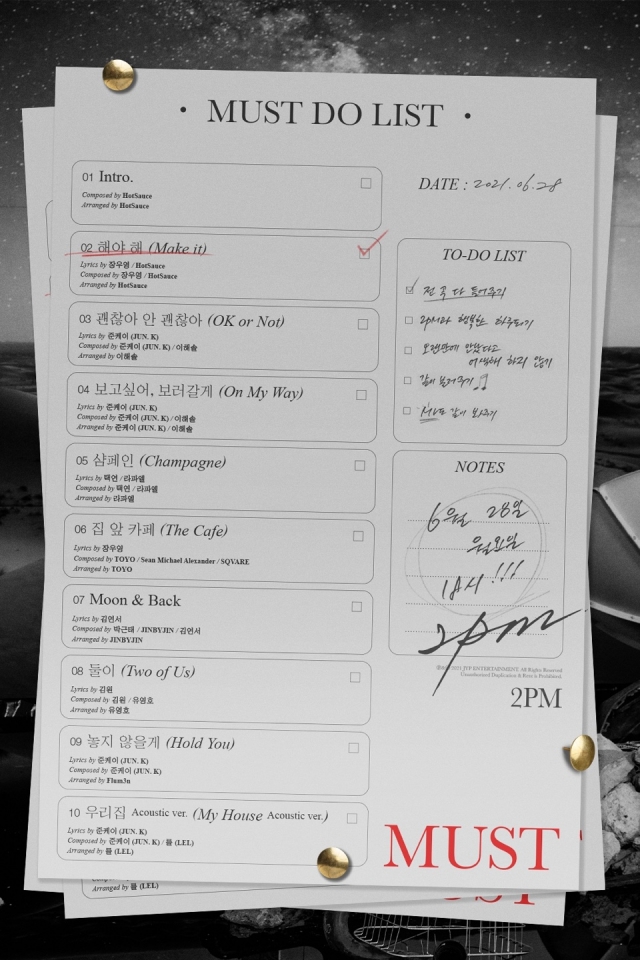 · MUST DO LIST ·
01 Intro.
Composed by HotSauce
Arranged by HotSauce
02 해야 해 (Make it)
Lyrics by 장우영 / HotSauce
Composed by 장우영 / HotSauce
Arranged by HotSauce
03 괜찮아 안 괜찮아 (OK or Not)
Lyrics by 준케이 (JUN. K)
Composed by 준케이 (JUN. K) / 이해솔
Arranged by 이해솔
04 보고싶어, 보러갈게 (On My Way)
Lyrics by 준케이 (JUN. K)
Composed by 준케이 (JUN. K) / 이해솔
Arranged by 준케이 (JUN. K) / 이해솔
05 샴페인 (Champagne)
Lyrics by 택연 / 라파엘
Composed by 택연 / 라파엘
Arranged by 라파엘
06 집 앞 카페 (The Cafe)
Lyrics by 장우영
Composed by TOYO / Sean Michael Alexander / SQVARE
Arranged by TOYO
07 Moon & Back
Lyrics by 김연서
Composed by 박근태 / JINBYJIN / 김연서
Arranged by JINBYJIN
08 둘이 (Two of Us)
Lyrics by 김원
Composed by 김원 / 유영호
Arranged by 유영호
09 놓지 않을게 (Hold You)
Lyrics by 준케이 (JUN. K)
Composed by 준케이 (JUN. K)
Arranged by Flum3n
10 우리집 Acoustic ver. (My House Acoustic ver.)
Lyrics by 준케이 (JUN. K)
Composed by 준케이 (JUN. K) / 를 (LEL)
Arranged by 를 (LEL)
DATE : 2021.06.28
TO-DO LIST
전 곡 다 들어주기
2PM과 행복한 하루되기
오랜만에 만났다고
어색해 하지 않기
같이 불러주기
MV도 같이 봐주기
NOTES
6월 28일
월요일
!!!
2pm
2021 JYP ENTERTAINMENT. All Rights Reserved
Unauthorized Duplication & Rent is Prohibited.
2PM
MUST
Arranged by 를 (LEL)